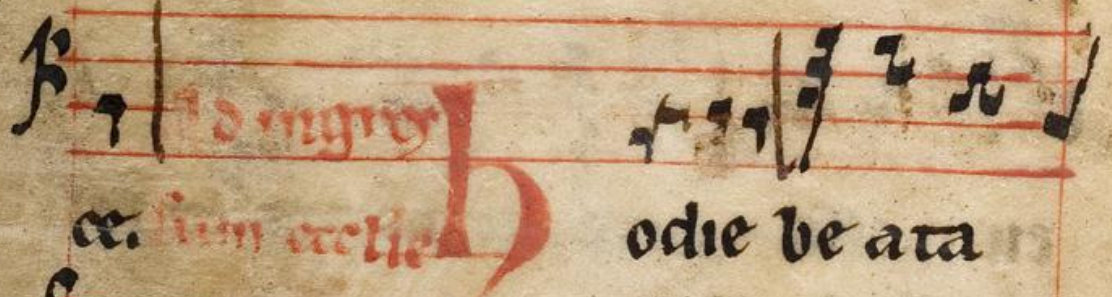 Ad ingres
ce. sum ecclesie Hodie be ata